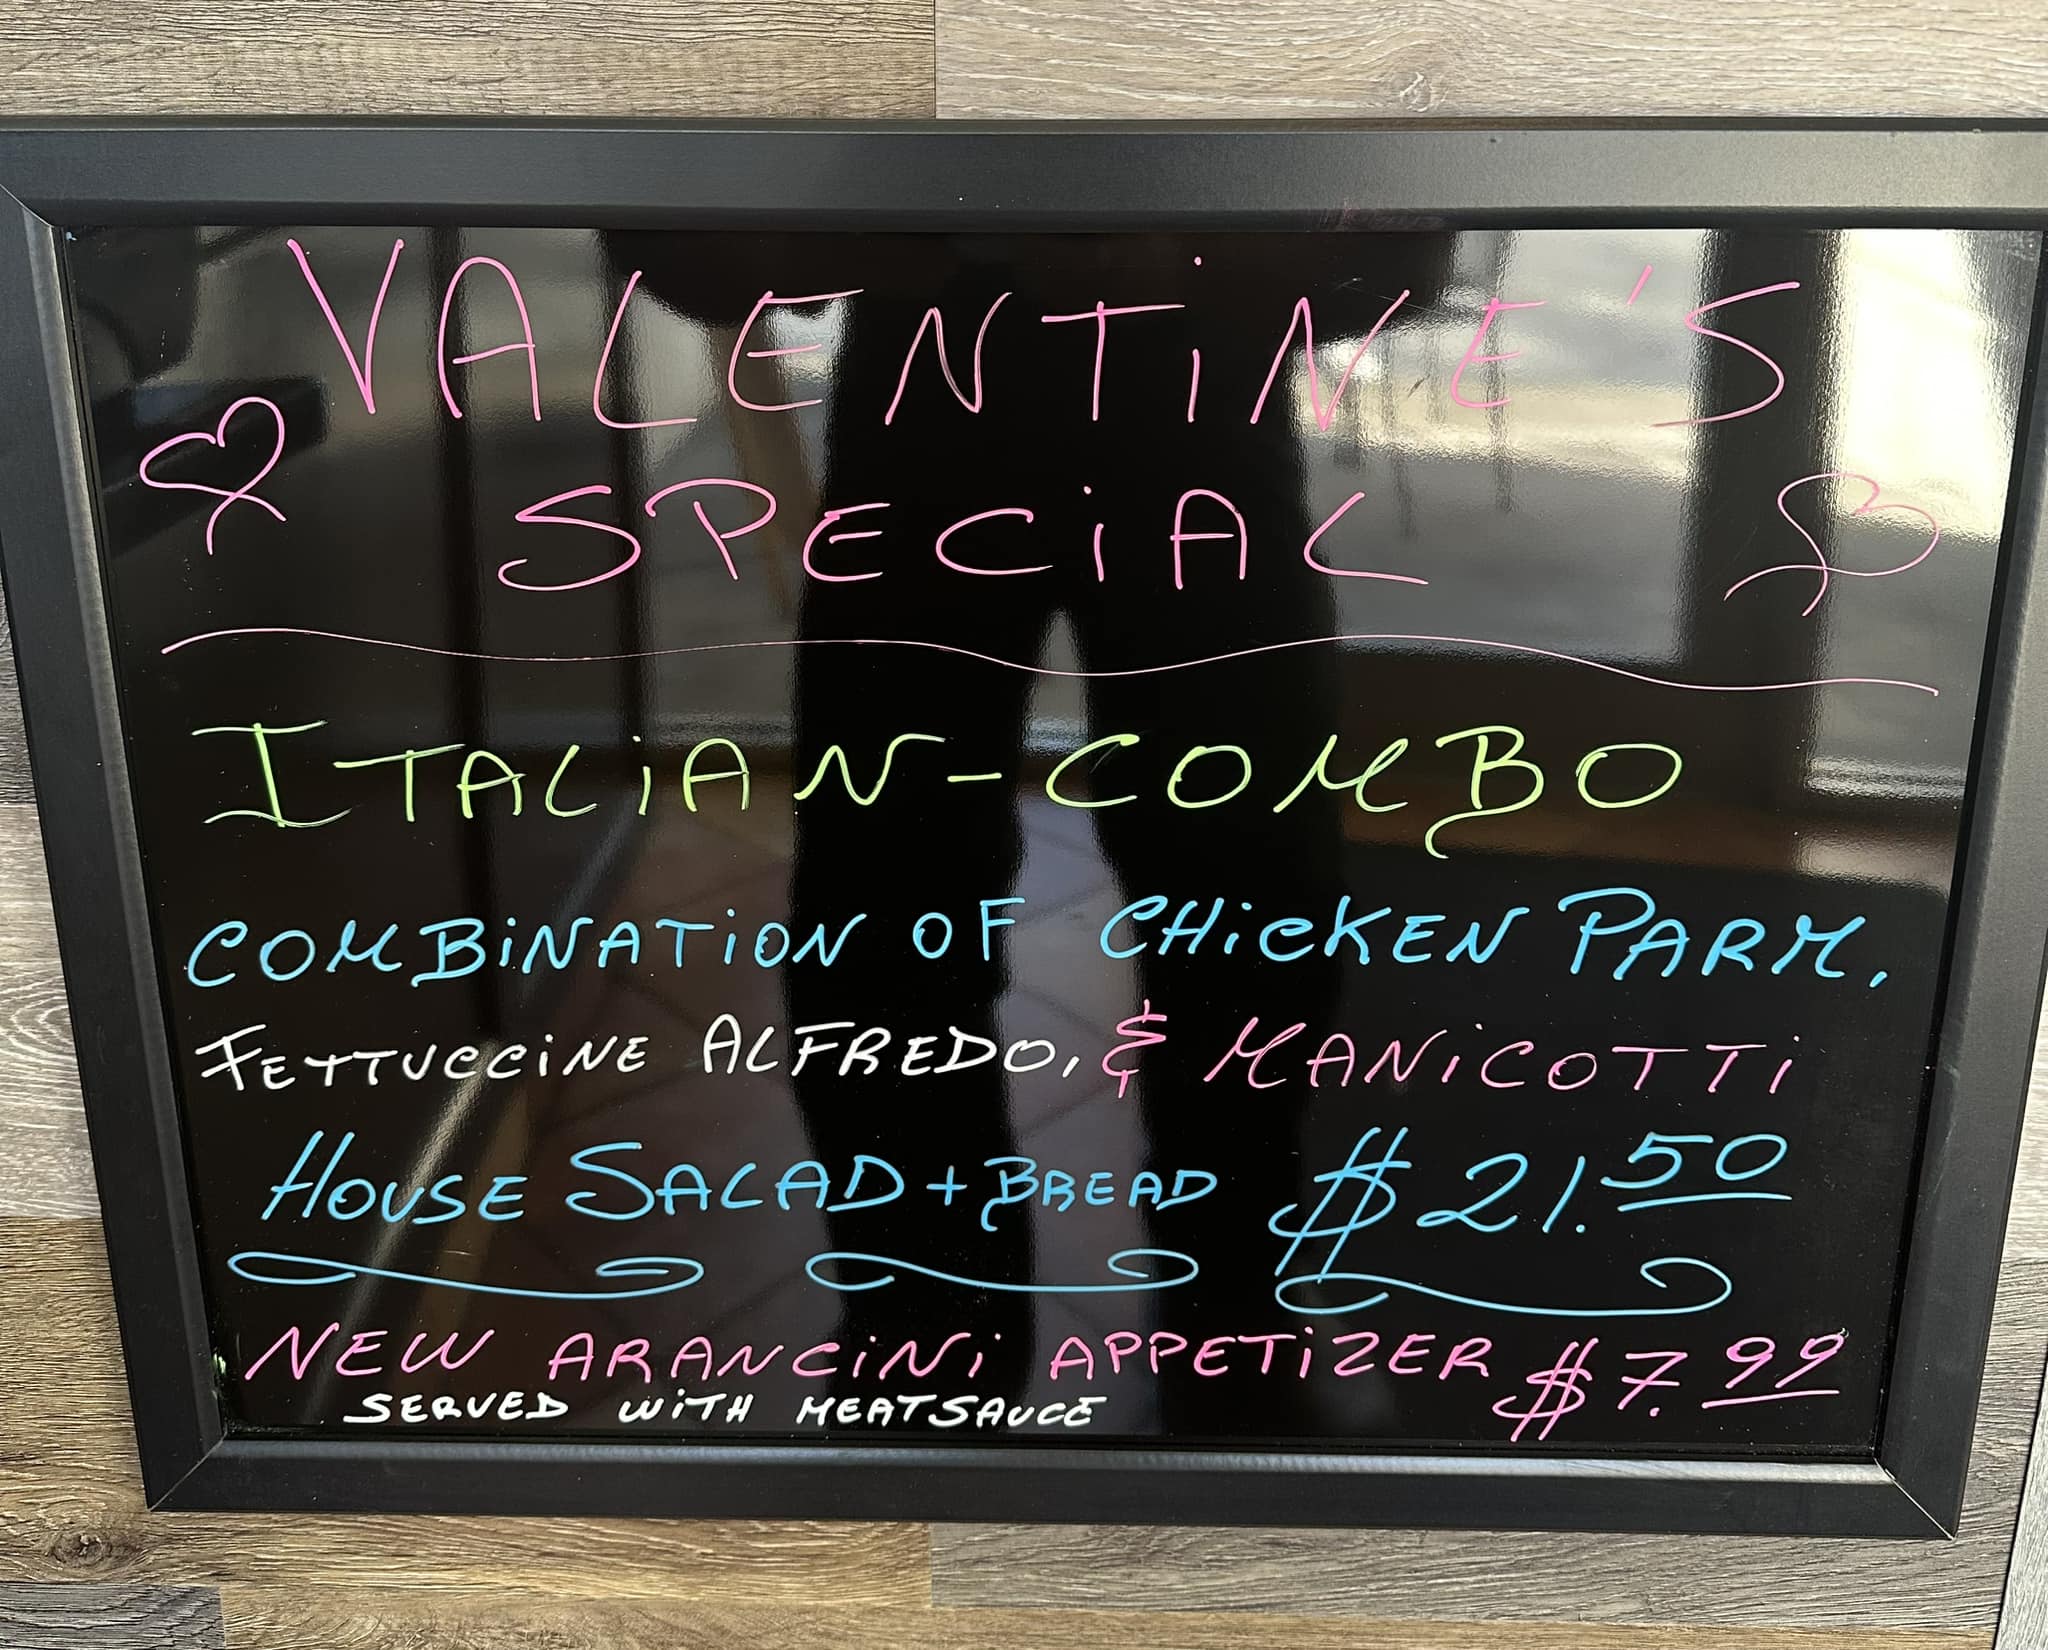 VALENTINE'S
SPECIAL
ITALIAN-COMBO
COMBINATION OF CHICKEN PARM,
FETTUCCINE ALFREDO, & MANICOTTI
HOUSE SALAD + BREAD $21.50
NEW ARANCINI APPETIZER $7.99
SERVED WITH MEATSAUCE